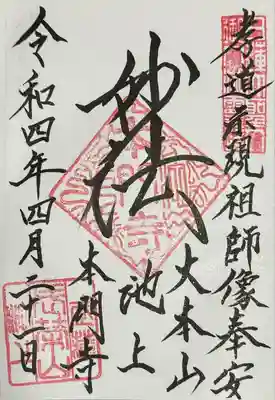 孝道示現祖師像奉安
大本山
池上
本門寺
妙法
令和四年四月二十一日